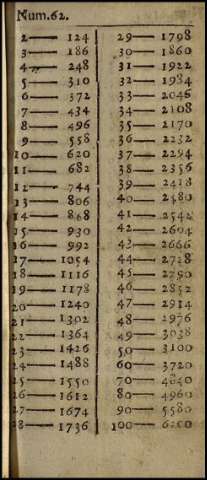 Num.62.
2— 124
3— 186
4— 248
5— 310
6— 372
7— 434
8— 496
9— 558
10— 620
11— 682
12— 744
13— 806
14— 868
15— 930
16— 992
17— 1054
18— 1116
19— 1178
20— 1240
21— 1302
22— 1364
23— 1426
24— 1488
25— 1550
26— 1612
27— 1674
28— 1736
29— 1798
30— 1860
31— 1922
32— 1984
33— 2046
34— 2108
35— 2170
36— 2232
37— 2294
38— 2356
39— 2418
40— 2480
41— 2542
42— 2604
43— 2666
44— 2728
45— 2790
46— 2852
47— 2914
48— 2976
49— 3038
50— 3100
60— 3720
70— 4340
80— 4960
90— 5580
100— 6200